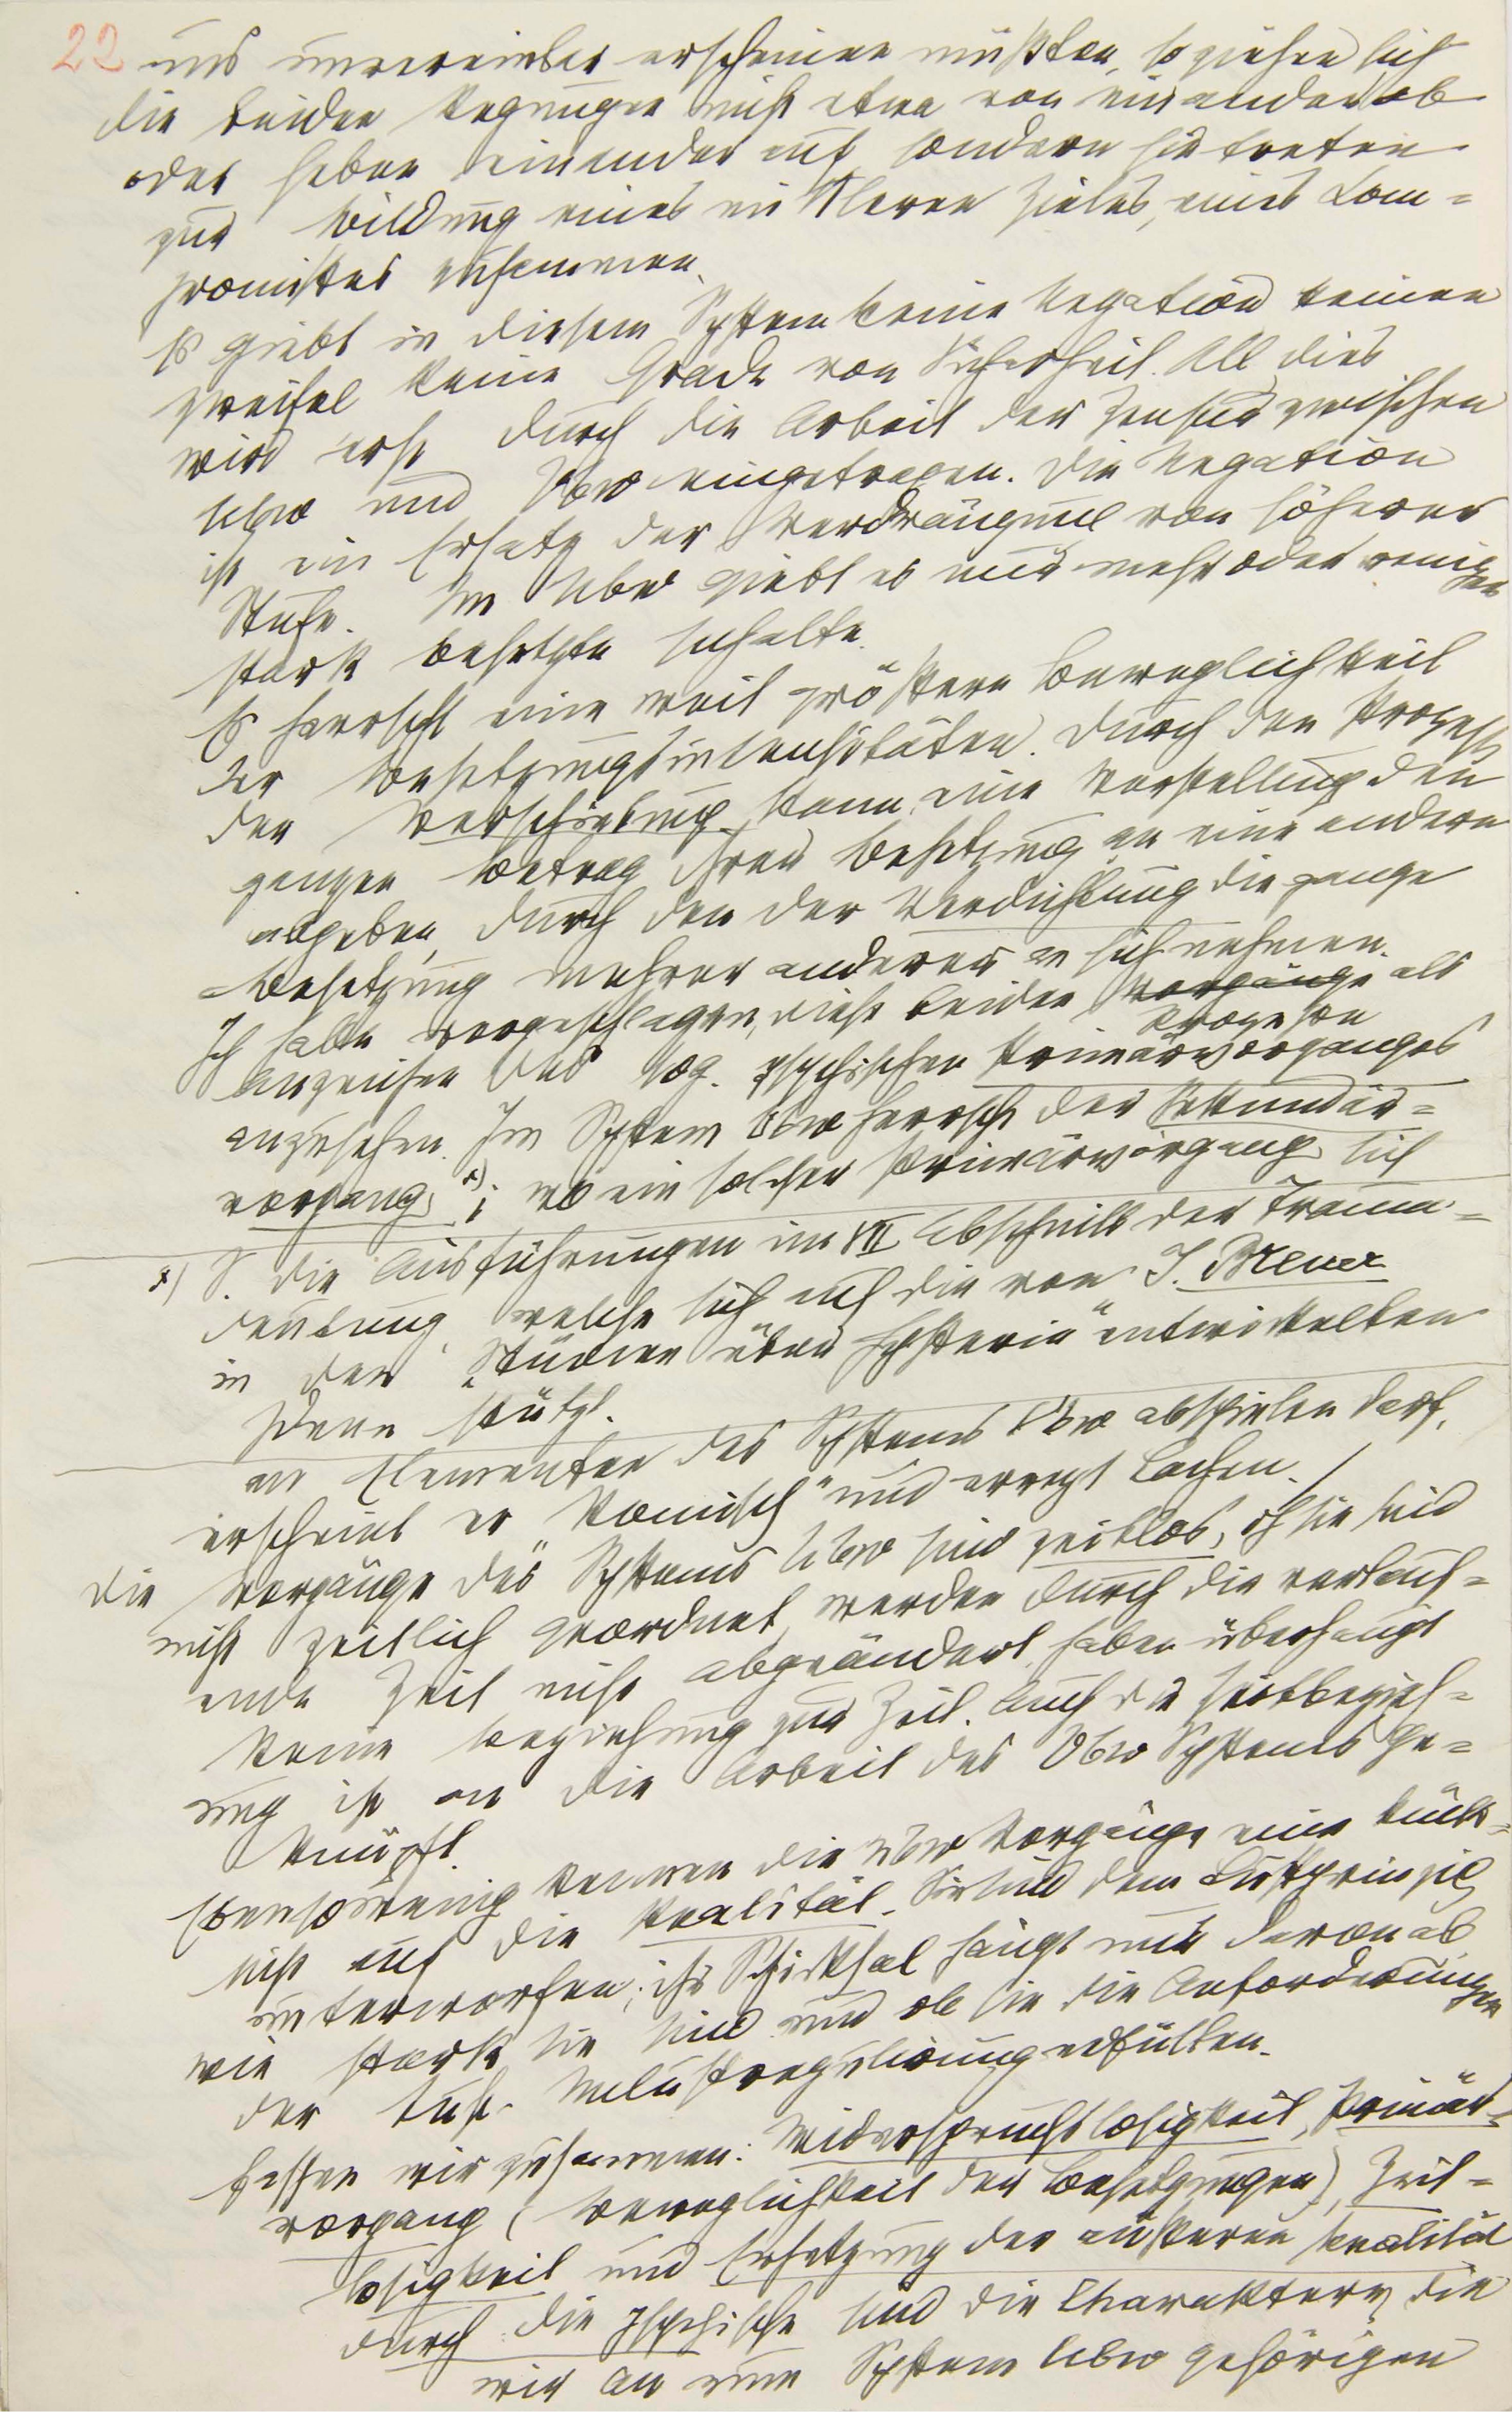 22 uns unvereinbar erscheinen müßten, so ziehen sich
die beiden Regungen nicht etwa von einander ab
oder heben einander auf, sondern sie treten
zur Bildung eines mittleren Zieles, eines Kom=
promisses zusammen.
Es giebt in diesem System keine Negation keinen
Zweifel keine Grade von Sicherheit. All dies
wird erst durch die Arbeit der Zensur zwischen
Ubw und Vbw eingetragen. Die Negation
ist ein Ersatz der Verdrängung von höherer
Stufe. Im Ubw giebt es nur mehr oder weniger
stark besetzte Inhalte.
Es herrscht eine weit größere Beweglichkeit
der Besetzungsintensitäten. Durch den Prozeß
der Verschiebung kann eine Vorstellung den
ganzen Betrag ihrer Besetzung an eine andere
abgeben, durch den der Verdichtung die ganze
Besetzung mehrer anderer an sich nehmen.
Ich habe vorgeschlagen, diese beiden Vorgänge als
Prozesse
Anzeichen des sog. psychischen Primärvorganges
anzusehen. Im System Vbw herrscht der Sekundär=
vorgang x); wo ein solcher Primärvorgang sich
x) S. die Ausführungen im VII Abschnitt der Traum=
deutung, welche sich auf die von J. Breuer
in den „Studien über Hysterie“ entwickelten
Ideen stützt.
an Elementen des Systems Vbw abspielen darf,
erscheint er „komisch“ und erregt Lachen. /
Die Vorgänge des Systems Ubw sind zeitlos, dh sie sind
nicht zeitlich geordnet, werden durch die verlauf=
ende Zeit nicht abgeändert, haben überhaupt
keine Beziehung zur Zeit. Auch die Zeitbezieh=
ung ist an die Arbeit des Vbw Systems ge=
knüpft.
Ebensowenig kennen die Ubw Vorgänge eine Rück=
sicht auf die Realität. Sie sind dem Lustprinzip
unterworfen; ihr Schicksal hängt nur davon ab
wie stark sie sind und ob sie die Anforderungen
der Lust-Unlustregulirung erfüllen.
Fassen wir zusammen: Widerspruchslosigkeit, Primär=
vorgang (Beweglichkeit der Besetzungen), Zeit=
losigkeit und Ersetzung der äußeren Realität
durch die psychische sind die Charaktere, die
wir an zum System Ubw gehörigen